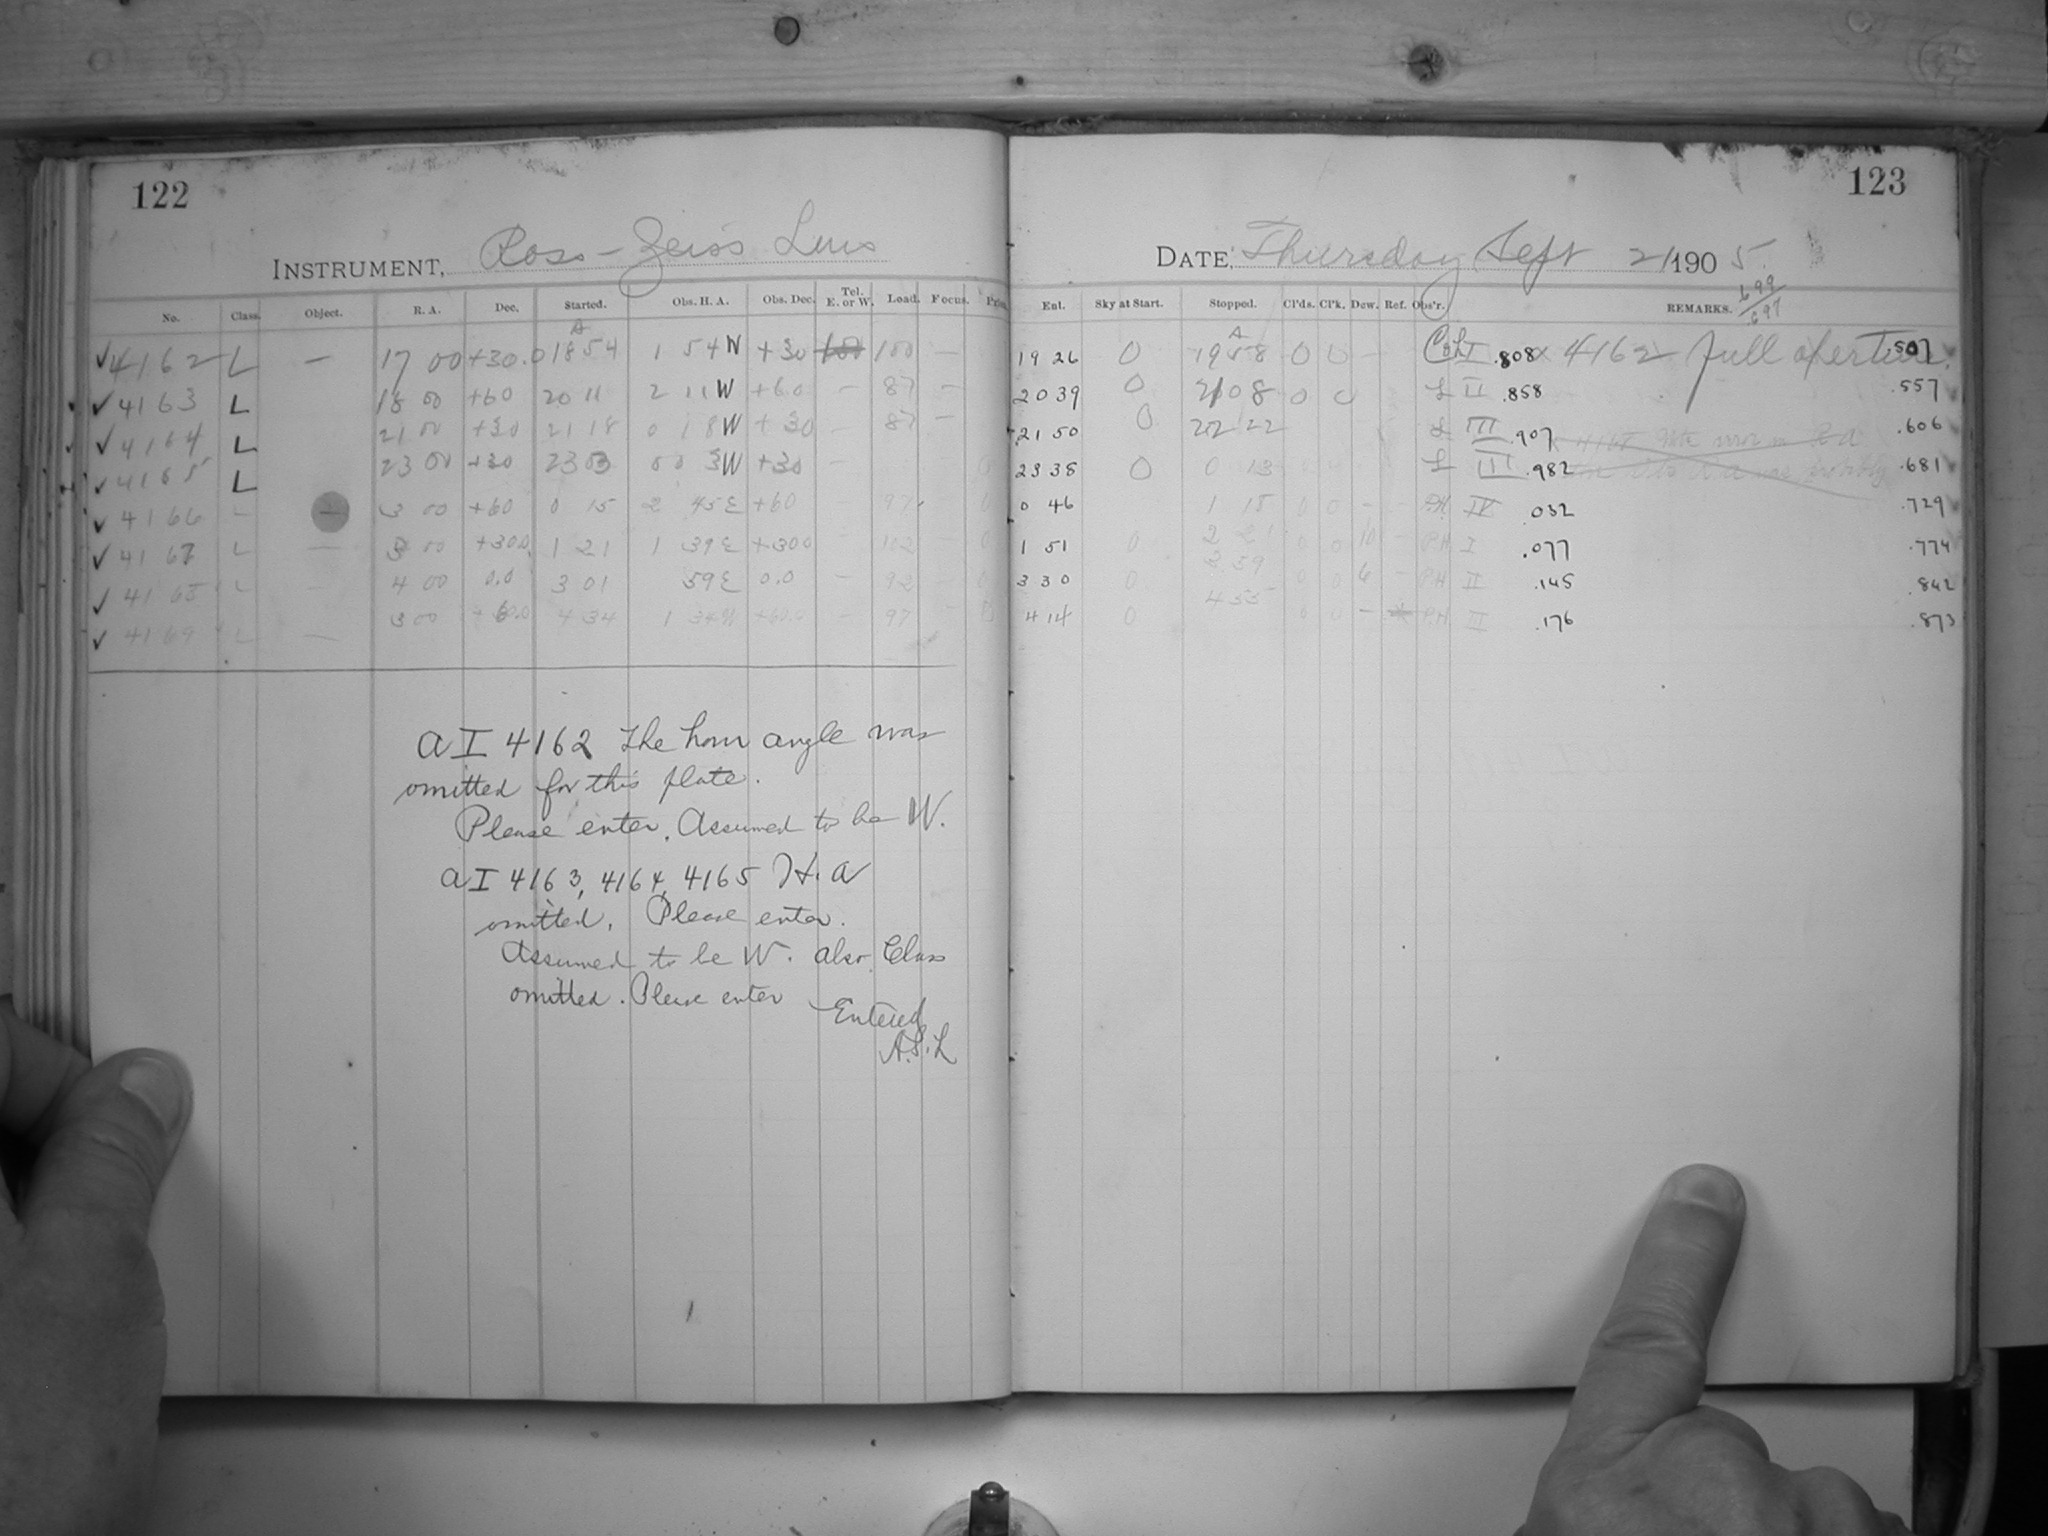 122
INSTRUMENT, Ross-Zeiss Lens
No. Class. Object. R. A. Dec. Started. Obs. H. A. Obs. Dec. Tel. E. or W. Load. Focus.
4162 L — 17 00 +30.0 18 54 1 54 W +30 100 100 —
4163 L 18 00 +60 20 11 2 11 W +60 — 87 —
4164 L 21 00 +30 21 18 0 18 W +30 — 87 —
4165 L 23 00 +30 23 03 00 3 W +30 —
4166 L — 3 00 +60 0 15 2 45 E +60 — 97
4167 L — 3 00 +30.0 1 21 1 39 E +30.0 — 102 — 0
4168 L — 4 00 0.0 3 01 59 E 0.0 — 92 0
4169 L — 3 00 +60.0 4 34 1 34 W +60.0 — 97 — 0
a I 4162 The hour angle was
omitted for this plate.
Please enter. Assumed to be W.
a I 4163, 4164, 4165 H. a
omitted. Please enter.
Assumed to be W. also Class
omitted. Please enter
Entered
A.S.L
123
DATE, Thursday Sept 21 1905
Ent. Sky at Start. Stopped. Cl'ds. Cl'k. Dew. Ref. Obs'r. REMARKS. .699
.697
19 26 0 19 58 0 0 — I .808 x 4162 full .507
20 39 0 21 08 0 0 L II .858 .557
21 50 0 22 22 L III .907 .606
23 38 0 0 13 L III .982 .681
0 46 1 18 0 0 — — P.H. IV .032 .729
1 51 0 2 21 0 0 10 — P.H. I .077 .774
3 30 0 3 59 0 0 6 — P.H. II .145 .842
4 14 0 4 55 0 0 — P.H. III .176 .873